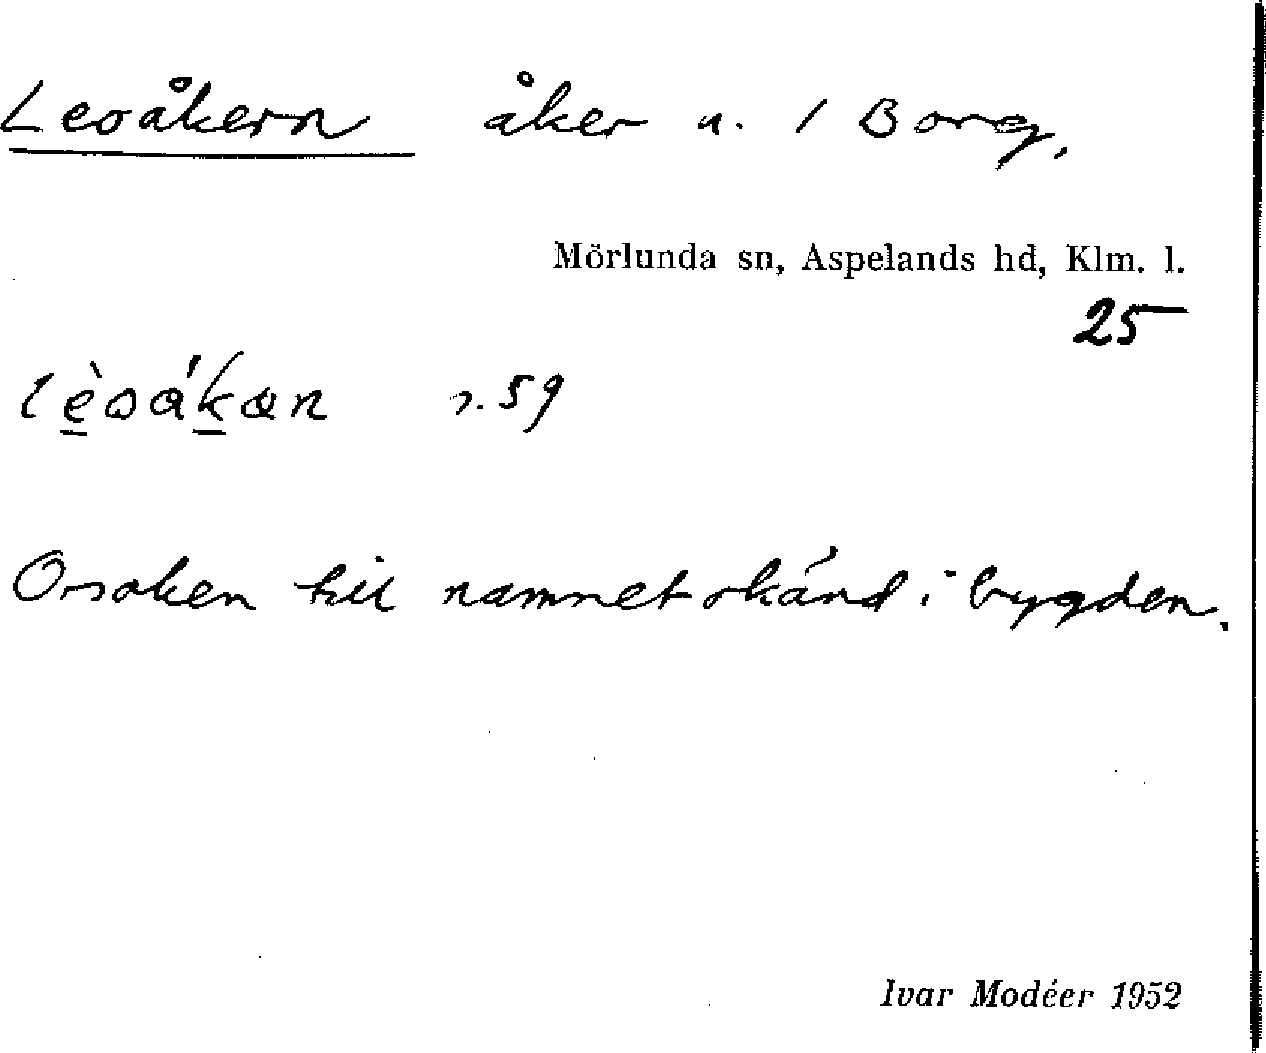 Leoåkern åker u. / Borg.
Mörlunda sn, Aspelands hd, Klm. l.
25
s. 59
Orsaken till namnet okänd i bygden.
Ivar Modéer 1952